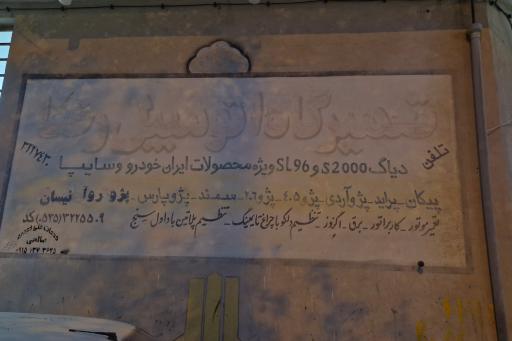 تعمیرگاه اتومبیل
تلفن
۳۲۲۷۴۳۰
دیاگ S2000 و SL96 ویژه محصولات ایران خودرو و سایپا
پیکان _ پراید _ پژو آردی _ پژو ۴۰۵ _ پژو ۲۰۶ _ سمند _ پژو پارس _ پژو روآ نیسان
تعمیر موتور _ کاربراتور _ برق _ اگزوز _ تنظیم دلکو با چراغ تایمینگ _ تنظیم پلاتین با داول سنج
کد (۰۵۲۵) ۳۲۲۵۵۰۹
خدمات
صالحی